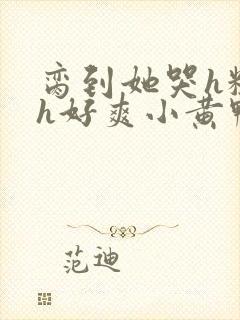 脔到她哭h
h好爽小黄
范迪